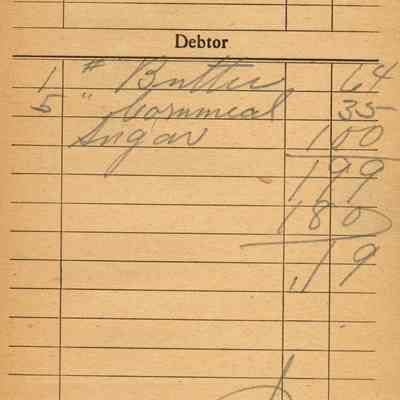 Debtor
1 # Butter 64
5 " Cornmeal 35
Sugar 1 00
1 99
1 80
.19